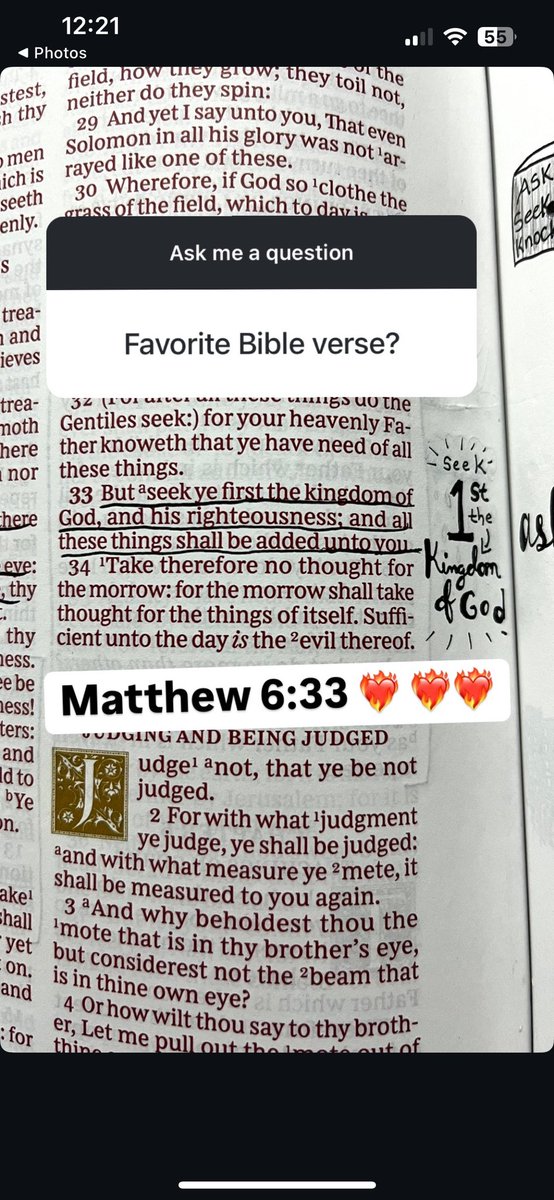 12:21
55
◀ Photos
stest,
h thy
men
ich is
seeth
enly.
s
trea-
and
ieves
trea-
moth
here
nor
there
eye:
thy
thy
ness.
ee be
ness!
ters:
and
ld to
ᵇYe
on.
ake¹
shall
yet
on.
and
: for
of the
field, how they grow; they toil not,
neither do they spin:
29 And yet I say unto you, That even
Solomon in all his glory was not ¹ar-
rayed like one of these.
30 Wherefore, if God so ¹clothe the
grass of the field, which to day is
Ask me a question
Favorite Bible verse?
32 (For after all these things do the
Gentiles seek:) for your heavenly Fa-
ther knoweth that ye have need of all
these things.
33 But ᵃseek ye first the kingdom of
God, and his righteousness; and all
these things shall be added unto you.
34 ¹Take therefore no thought for
the morrow: for the morrow shall take
thought for the things of itself. Suffi-
cient unto the day is the ²evil thereof.
Matthew 6:33 ❤️‍🔥 ❤️‍🔥❤️‍🔥
JUDGING AND BEING JUDGED
Judge¹ ᵃnot, that ye be not
judged.
2 For with what ¹judgment
ye judge, ye shall be judged:
ᵃand with what measure ye ²mete, it
shall be measured to you again.
3 ᵃAnd why beholdest thou the
¹mote that is in thy brother's eye,
but considerest not the ²beam that
is in thine own eye?
4 Or how wilt thou say to thy broth-
er, Let me pull out the ¹mote out of
Seek
1st
the
Kingdom
of God
ASK
Seek
Knock